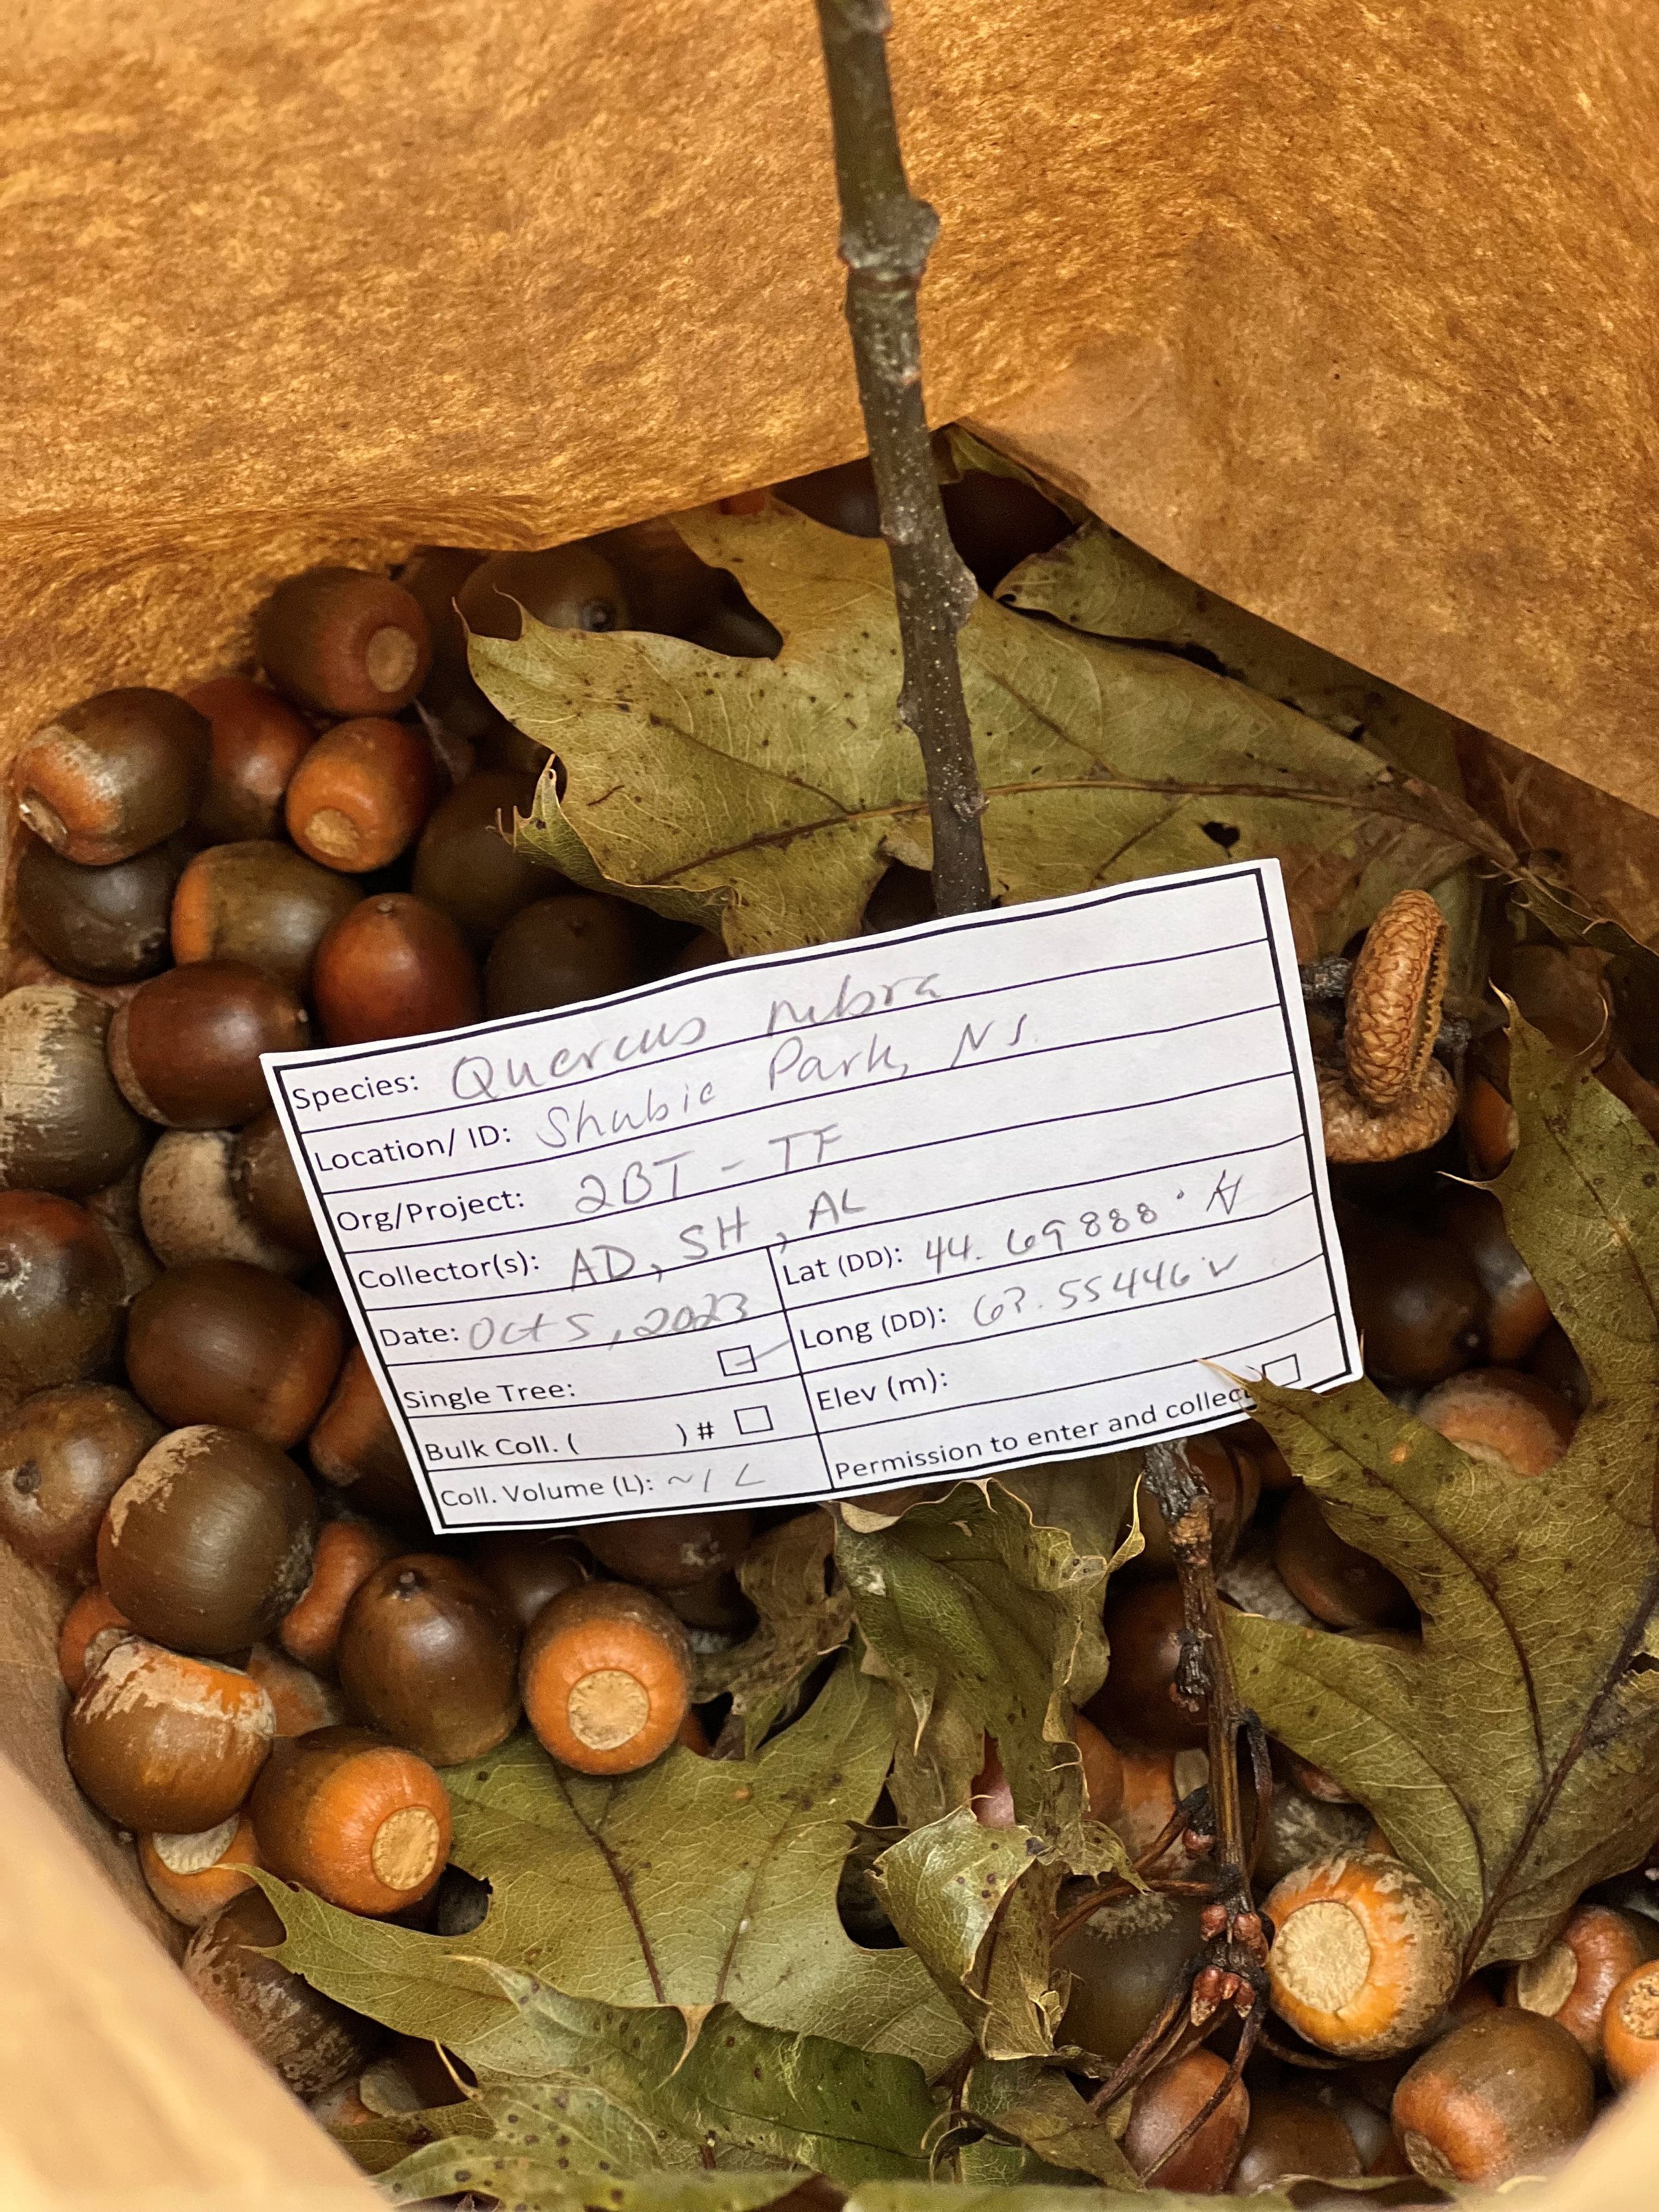 Species: Quercus rubra
Location/ ID: Shubie Park, NS.
Org/Project: 2BT - TF
Collector(s): AD, SH, AL
Date: Oct 5, 2023
Lat (DD): 44.69888° N
Single Tree:
Long (DD): 63.55446° W
Bulk Coll. ( ) #
Elev (m):
Coll. Volume (L): ~1 L
Permission to enter and collect